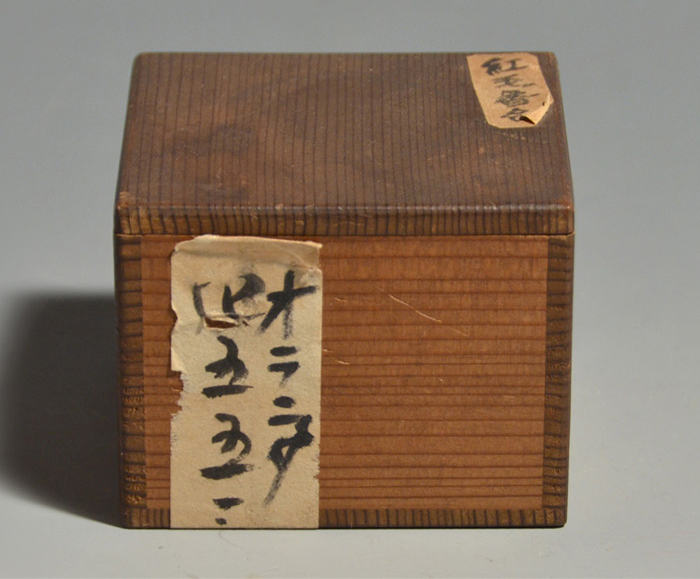 紅毛香合
オランダ
五五二